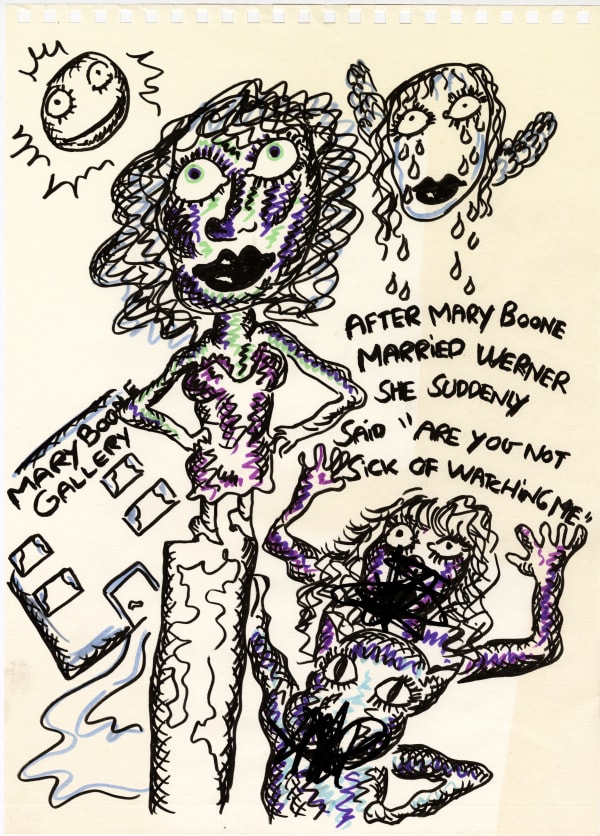 AFTER MARY BOONE
MARRIED WERNER
SHE SUDDENLY
SAID "ARE YOU NOT
SICK OF WATCHING ME"
MARY BOONE
GALLERY